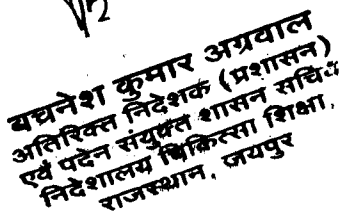 बचनेश कुमार अग्रवाल
अतिरिक्त निदेशक (प्रशासन)
एवं पदेन संयुक्त शासन सचिव
निदेशालय चिकित्सा शिक्षा,
राजस्थान, जयपुर